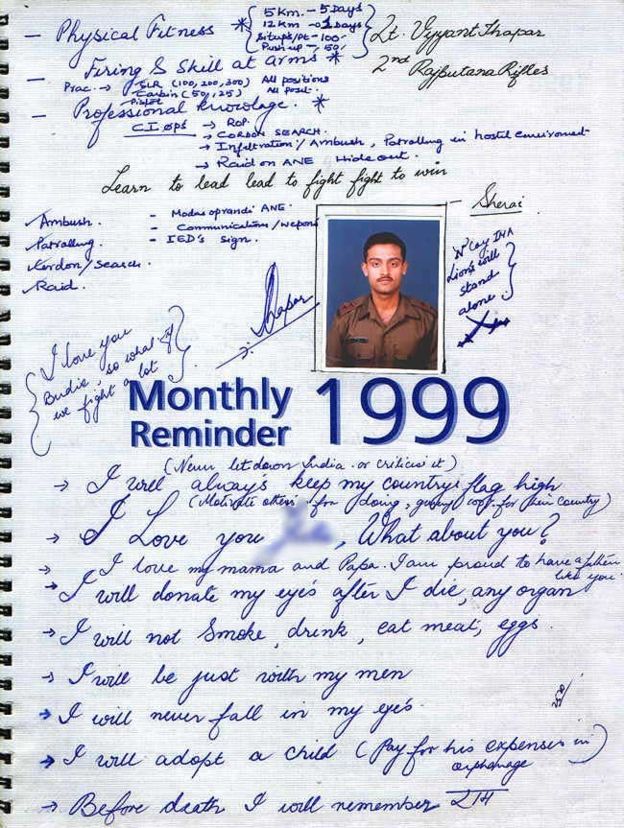 - Physical Fitness * { 5 Km. - 5 Days
12 Km - 2 Days
Situps/Pt - 100
Push up - 50 }
Lt. Vijyant Thapar
2nd Rajputana Rifles
- Firing & Skill at arms *
Prac. → SLR (100, 200, 300) All positions
Carbin (50, 25) All posit.
Pistol
- Professional knowlage. *
C.I Ops → ROP.
→ CORDON SEARCH.
→ Infiltration/Ambush, Patrolling in hostil enviroment
→ Raid on ANE Hide out.
Learn to lead lead to fight fight to win
- Sherai
Ambush.
Patrolling.
Kordon/Search.
Raid.
- Modus oprandi ANE.
- Communications/weapons
- IED's sign.
Lions will
stand
alone.
Thapar
I love you
Budie, so what if
we fight a lot
Monthly
Reminder 1999
(Never let down India or criticise it)
→ I will always keep my country's flag high
(Motivate others for doing, for their country)
→ I Love you , What about you?
→ I love my mama and Papa. I am proud to have a father
like you
→ I will donate my eye's after I die, any organ
→ I will not Smoke, drink, eat meat, eggs.
→ I will be just with my men
→ I will never fall in my eye's.
→ I will adopt a child (Pay for his expenses in)
orphanage
→ Before death I will remember